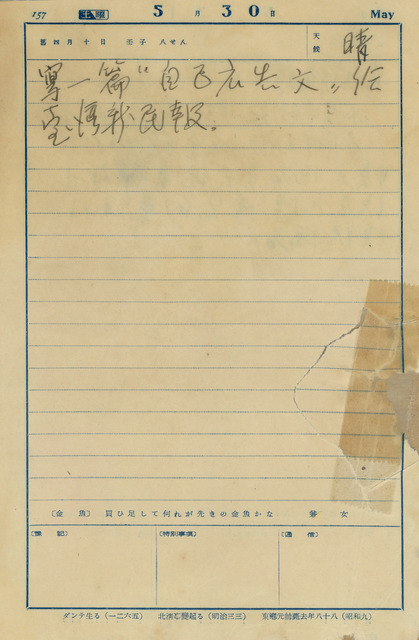 157 土曜 5月30日 May
舊四月十日 壬子 八せん 天候 晴
寫一篇“自己広告文”,給
臺灣新民報。
〔金魚〕 買ひ足して何れが先きの金魚かな 女
(豫記) (特別事項) (通信)
ダンテ生る(一二六五) 北淸事變起る(明治三三) 東鄕元帥薨去年八十八(昭和九)